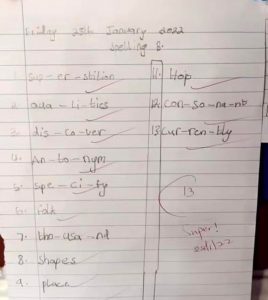 Friday 28th January 2022
Spelling 8.
1. sup-er-stition
2. qua-li-ties
3. dis-co-ver
4. An-to-nym
5. spe-ci-fy
6. risk
7. tho-usa-nd
8. shapes
9. place
11. Hop
12. con-so-na-nt
13. cur-ren-tly
13